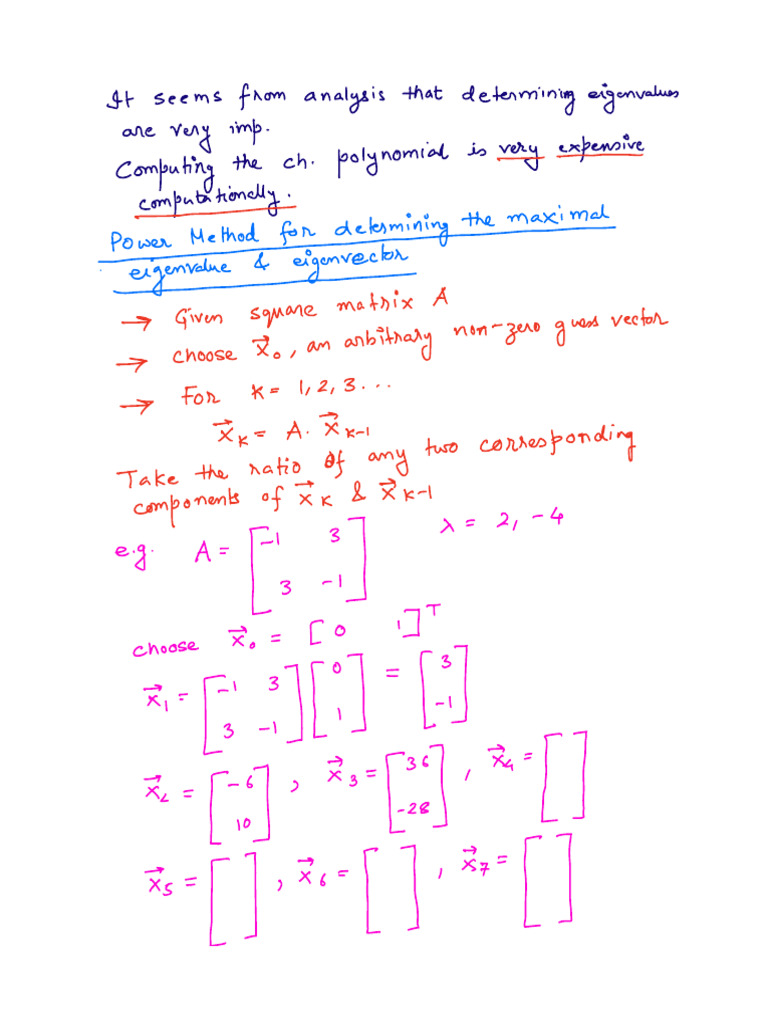 It seems from analysis that determining eigenvalues
are very imp.
Computing the ch. polynomial is very expensive
computationally.
Power Method for determining the maximal
eigenvalue & eigenvector
→ Given square matrix A
→ choose x⃗₀, an arbitrary non-zero guess vector
→ For k = 1, 2, 3 ...
x⃗ₖ = A. x⃗ₖ₋₁
Take the ratio of any two corresponding
components of x⃗ₖ & x⃗ₖ₋₁
e.g. A = [-1 3; 3 -1] λ = 2, -4
choose x⃗₀ = [0 1]ᵀ
x⃗₁ = [-1 3; 3 -1] [0; 1] = [3; -1]
x⃗₂ = [-6; 10], x⃗₃ = [36; -28], x⃗₄ = [ ]
x⃗₅ = [ ], x⃗₆ = [ ], x⃗₇ = [ ]